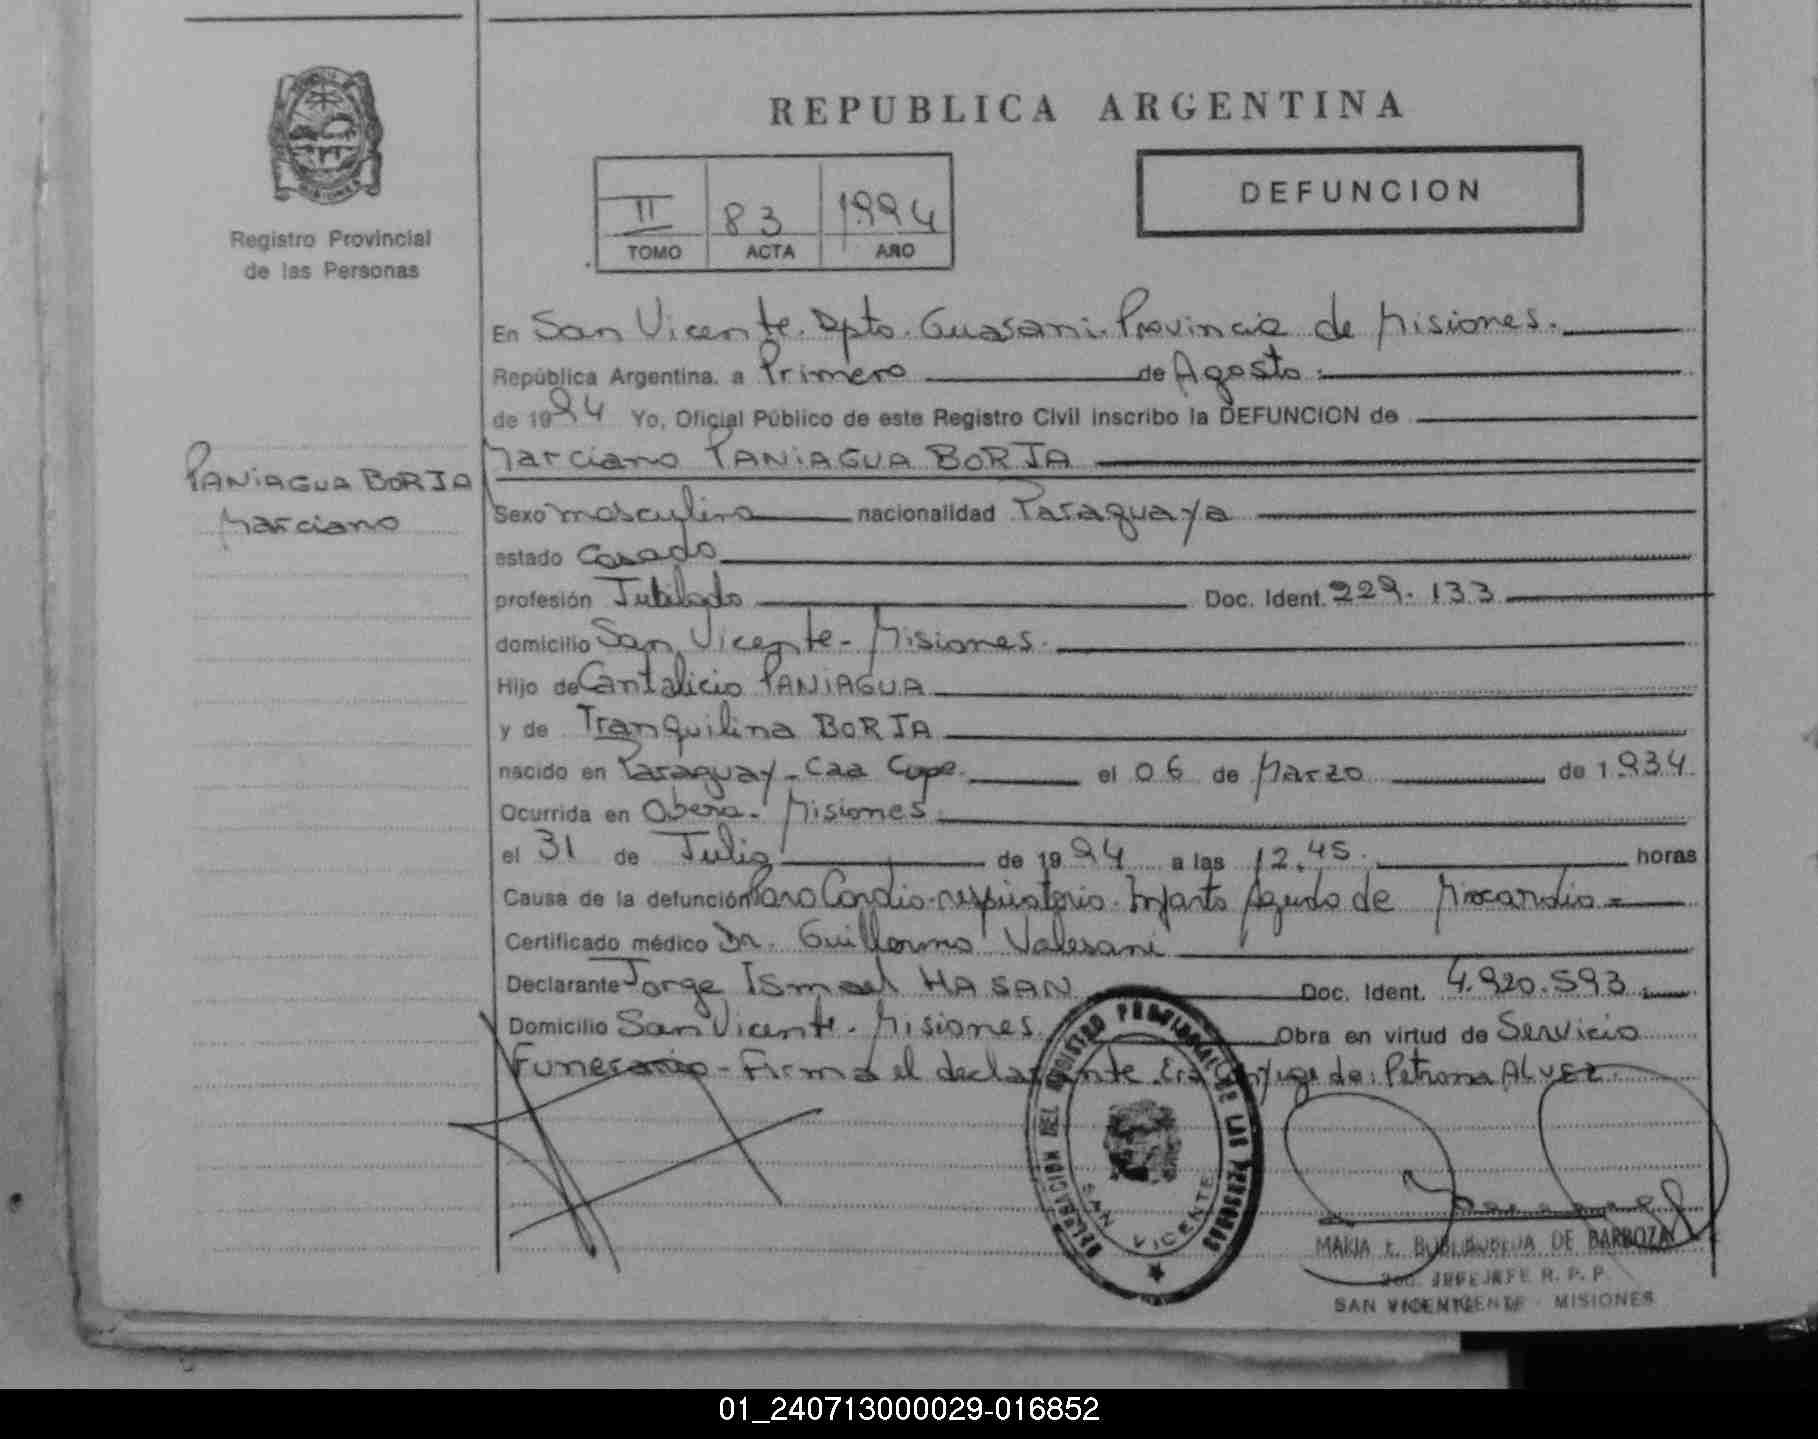 REPUBLICA ARGENTINA
DEFUNCION
II 83 1994
TOMO ACTA AÑO
Registro Provincial
de las Personas
En San Vicente. Dpto. Guaraní. Provincia de Misiones.
República Argentina, a Primero de Agosto.
de 1994 Yo, Oficial Público de este Registro Civil inscribo la DEFUNCION de
Marciano PANIAGUA BORJA
PANIAGUA BORJA
Marciano
Sexo masculino nacionalidad Paraguaya
estado Casado
profesión Jubilado Doc. Ident. 229.133
domicilio San Vicente - Misiones.
Hijo de Cantalicio PANIAGUA
y de Tranquilina BORJA
nacido en Paraguay - Caa Cupe. el 06 de Marzo de 1934
Ocurrida en Obera - Misiones
el 31 de Julio de 1994 a las 12,45. horas
Causa de la defunción Paro Cardio-respiratorio. Infarto Agudo de Miocardio
Certificado médico Dr. Guillermo Valesani
Declarante Jorge Ismael HASAN Doc. Ident. 4.920.593
Domicilio San Vicente - Misiones. Obra en virtud de Servicio
Funerario - Firma el declarante. Era de: Petrona ALVEZ
DELEGACION DEL REGISTRO PROVINCIAL DE LAS PERSONAS
SAN VICENTE
MARIA DE BARBOZA
JEFE R. P. P.
SAN VICENTE - MISIONES
01_240713000029-016852